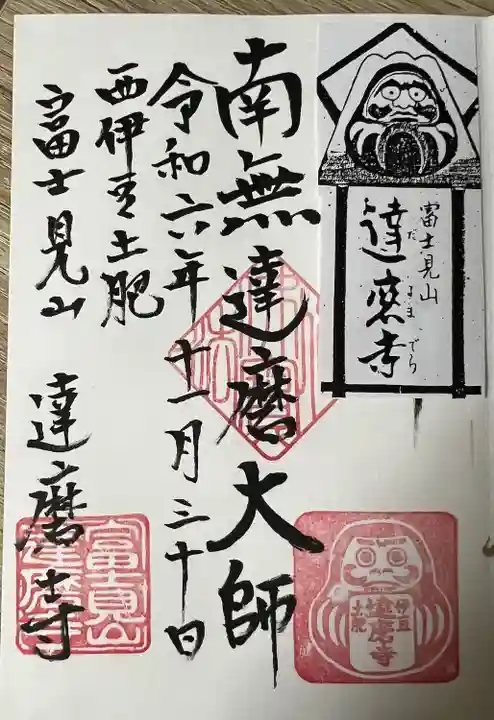 富士見山
達磨寺
だるまでら
南無達磨大師
令和六年十一月三十日
西伊豆土肥
富士見山 達磨寺
伊豆
土肥
達磨寺